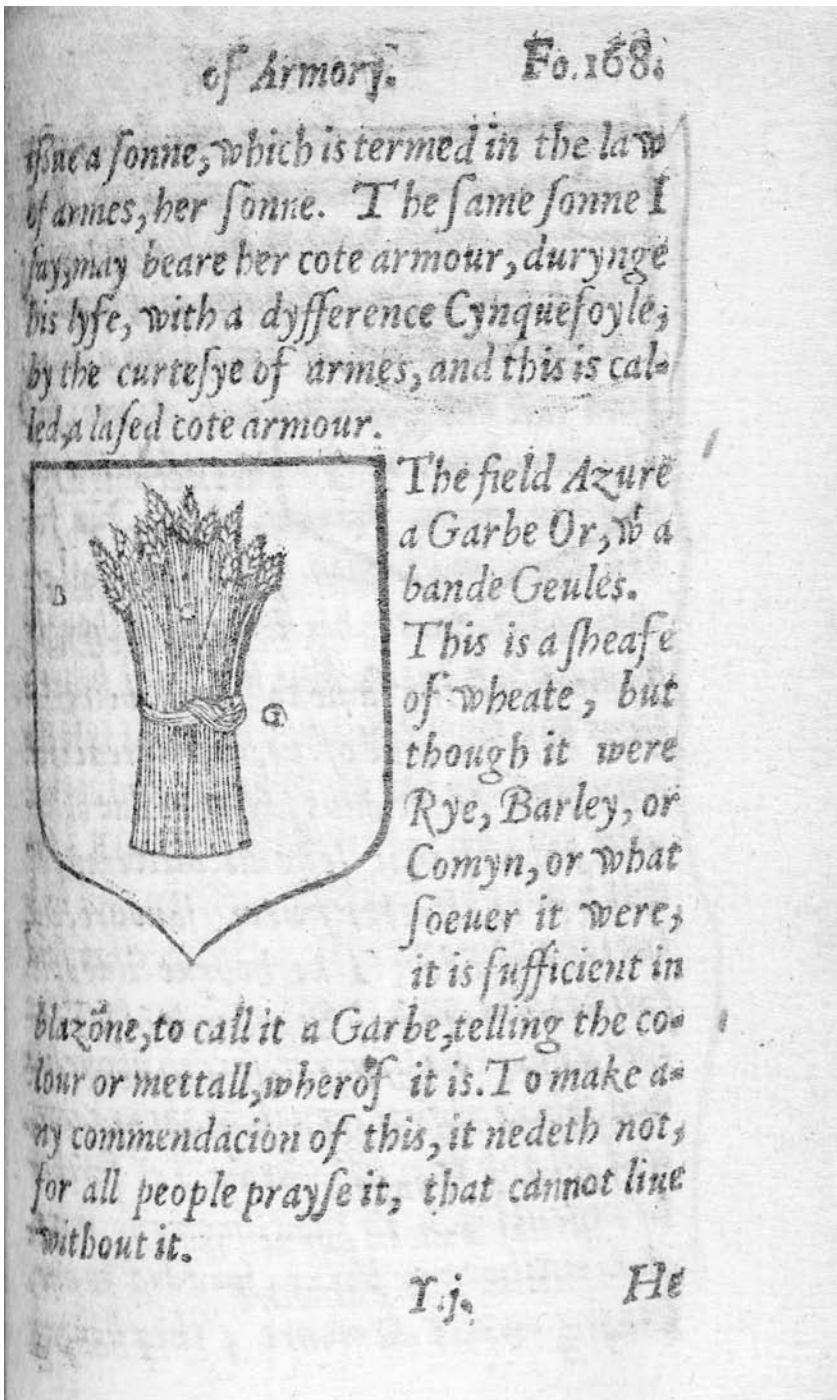 of Armory. Fo.168.
issue a ſonne, which is termed in the law
of armes, her ſonne. The ſame ſonne I
ſay, may beare her cote armour, durynge
his lyfe, with a dyfference Cynquefoyle,
by the curteſye of armes, and this is cal-
led, a laſed cote armour.
The field Azure
a Garbe Or, wͭ a
bande Geules.
This is a ſheafe
of wheate, but
though it were
Rye, Barley, or
Comyn, or what
ſoeuer it were,
it is ſufficient in
B
G
blazōne, to call it a Garbe, telling the co-
lour or mettall, wherof it is. To make a-
ny commendacion of this, it nedeth not,
for all people prayſe it, that cannot liue
without it.
Y.j. He